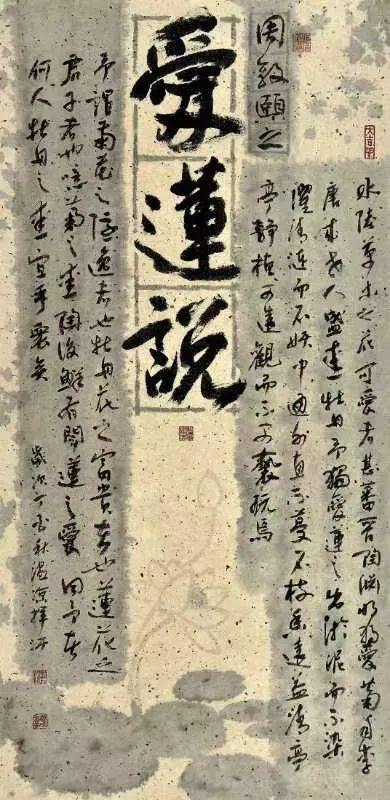 水陸草木之花可愛者甚蕃晉陶淵明獨愛菊自李
唐來世人盛愛牡丹予獨愛蓮之出淤泥而不染
濯清漣而不妖中通外直不蔓不枝香遠益清亭
亭靜植可遠觀而不可褻玩焉
周敦頤之
愛蓮說
予謂菊花之隱逸者也牡丹花之富貴者也蓮花之
君子者也噫菊之愛陶後鮮有聞蓮之愛同予者
何人牡丹之愛宜乎眾矣
歲次丁酉秋